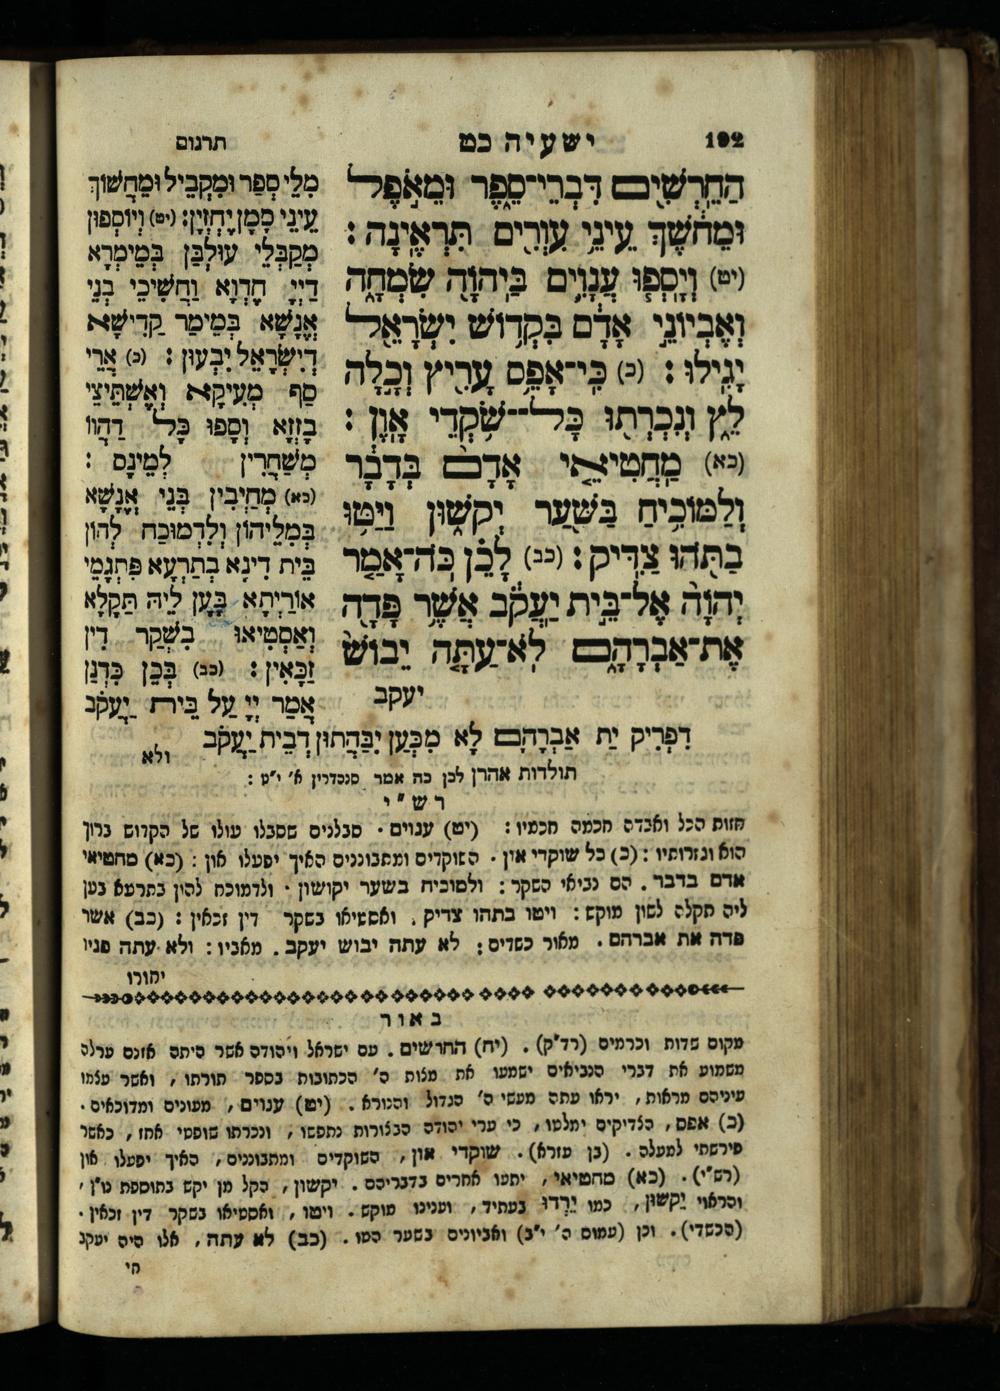 192
ישעיה כט
תרגום
הַחֵרְשִׁים דִּבְרֵי־סֵפֶר וּמֵאֹפֶל
וּמֵחֹשֶׁךְ עֵינֵי עִוְרִים תִּרְאֶינָה :
(יט) וְיָסְפוּ עֲנָוִים בַּיהוָֹה שִׂמְחָה
וְאֶבְיוֹנֵי אָדָם בִּקְדוֹשׁ יִשְׂרָאֵל
יָגִילוּ : (כ) כִּי־אָפֵס עָרִיץ וְכָלָה
לֵץ וְנִכְרְתוּ כָּל־שֹׁקְדֵי אָוֶן :
(כא) מַחֲטִיאֵי אָדָם בְּדָבָר
וְלַמּוֹכִיחַ בַּשַּׁעַר יְקֹשׁוּן וַיַּטּוּ
בַתֹּהוּ צַדִּיק : (כב) לָכֵן כֹּה־אָמַר
יְהוָֹה אֶל־בֵּית יַעֲקֹב אֲשֶׁר פָּדָה
אֶת־אַבְרָהָם לֹא־עַתָּה יֵבוֹשׁ
יעקב
מִלֵּי סְפַר וּמִקְבֵיל וּמֵחֲשׁוֹךְ
עֵינֵי סָמָן יֶחְזְיָן : (יט) וְיוֹסְפוּן
מְקַבְּלֵי עוּלְבָּן בְּמֵימְרָא
דַיְיָ חֶדְוָא וַחֲשִׁיכֵי בְנֵי
אֱנָשָׁא בְּמֵימַר קַדִישָׁא
דְיִשְׂרָאֵל יִבְעוּן : (כ) אֲרֵי
סָף מְעִיקָא וְאִשְׁתֵּיצֵי
בָזְזָא וְסָפוּ כָּל דַהֲווֹ
מְשַׁחֲרִין לְמֵינָס :
(כא) מְחַיְבִין בְּנֵי אֱנָשָׁא
בְּמִלֵּיהוֹן וְלִדְמוּכַח לְהוֹן
בֵּית דִינָא בְתַרְעָא פִּתְגָמֵי
אוֹרַיְתָא בָּעָן לֵיהּ תַּקָלָא
וְאַסְטִיאוּ בִשְׁקַר דִין
זַכָּאִין : (כב) בְּכֵן כִּדְנַן
אֲמַר יְיָ עַל בֵּית יַעֲקֹב
דִפְרִיק יַת אַבְרָהָם לָא מִכְּעַן יִבַּהֲתוּן דְבֵית יַעֲקֹב
ולא
תולדות אהרן לכן כה אמר סנהדרין א' י"ט :
רש"י
חזות הכל ואבדה חכמת חכמיו : (יט) ענוים . סבלנים שסבלו עולו של הקדוש ברוך
הוא וגזרותיו : (כ) כל שוקדי אין . השוקדים ומתבוננים האיך יפעלו און : (כא) מחטיאי
אדם בדבר . הם נביאי השקר : ולמוכיח בשער יקושון . ולדמוכח להון בתרעא בען
ליה תקלה לשון מוקש : ויטו בתהו צדיק . ואסטיאו בשקר דין זכאין : (כב) אשר
פדה את אברהם . מאור כשדים : לא עתה יבוש יעקב . מאביו : ולא עתה פניו
יחורו
באור
מקום שדות וכרמים (רד"ק) . (יח) החרשים . עם ישראל ויהודה אשר היתה אזנם ערלה
משמוע את דברי הנביאים ישמעו את מצות ה' הכתובות בספר תורתו , ואשר עצמו
עיניהם מראות , יראו עתה מעשי ה' הגדול והנורא . (יט) ענוים , מעונים ומדוכאים .
(כ) אפס , הצדיקים ימלטו , כי ערי יהודה הבצורות נתפשו , ונכרתו שופטי אחז , כאשר
פירשתי למעלה . (בן עזרא) . שוקדי און , השוקדים ומתבוננים , האיך יפעלו און
(רש"י) . (כא) מחטיאי , יתעו אחרים בדבריהם . יקשון , הקל מן יקש בתוספת נו"ן ,
והראוי יַקְשׁוּן , כמו יֵרְדוּ בעתיד , וענינו מוקש . ויטו , ואסטיאו בשקר דין זכאין .
(הכשדי) . וכן (עמוס ה' י"ב) ואביונים בשער הטו . (כב) לא עתה , אלו היה יעקב
חי